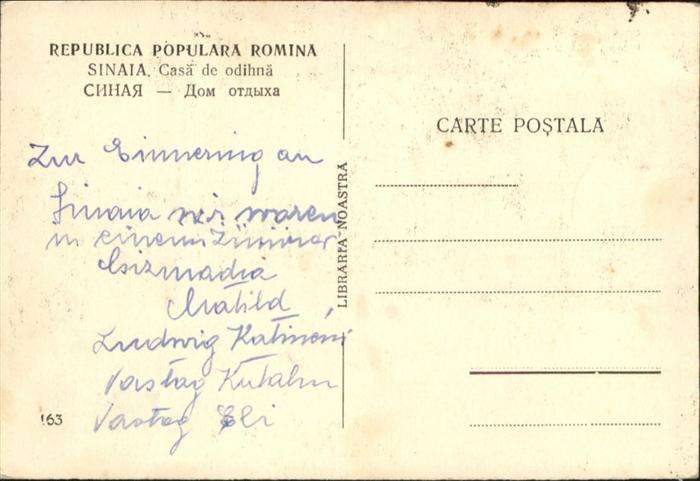 REPUBLICA POPULARA ROMINA
SINAIA, Casă de odihnă
СИНАЯ — Дом отдыха
CARTE POȘTALA
LIBRĂRIA NOASTRĂ
Zur Erinnerung an
Sinaia wir waren
in einem Zimmer
Csizmadia
Matild
Ludwig
Vastag
Vastag Eli
163